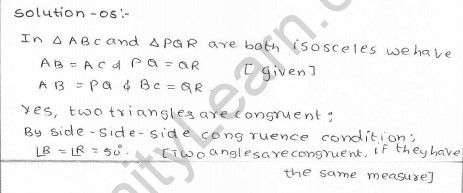 Solution-05:-
In △ABC and △PQR are both isosceles we have
AB = AC & PQ = QR [given]
AB = PQ & BC = QR
Yes, two triangles are congruent;
By side-side-side congruence condition;
∠B = ∠R = 50°. [Two angles are congruent, if they have
the same measure]
ityLearn.c